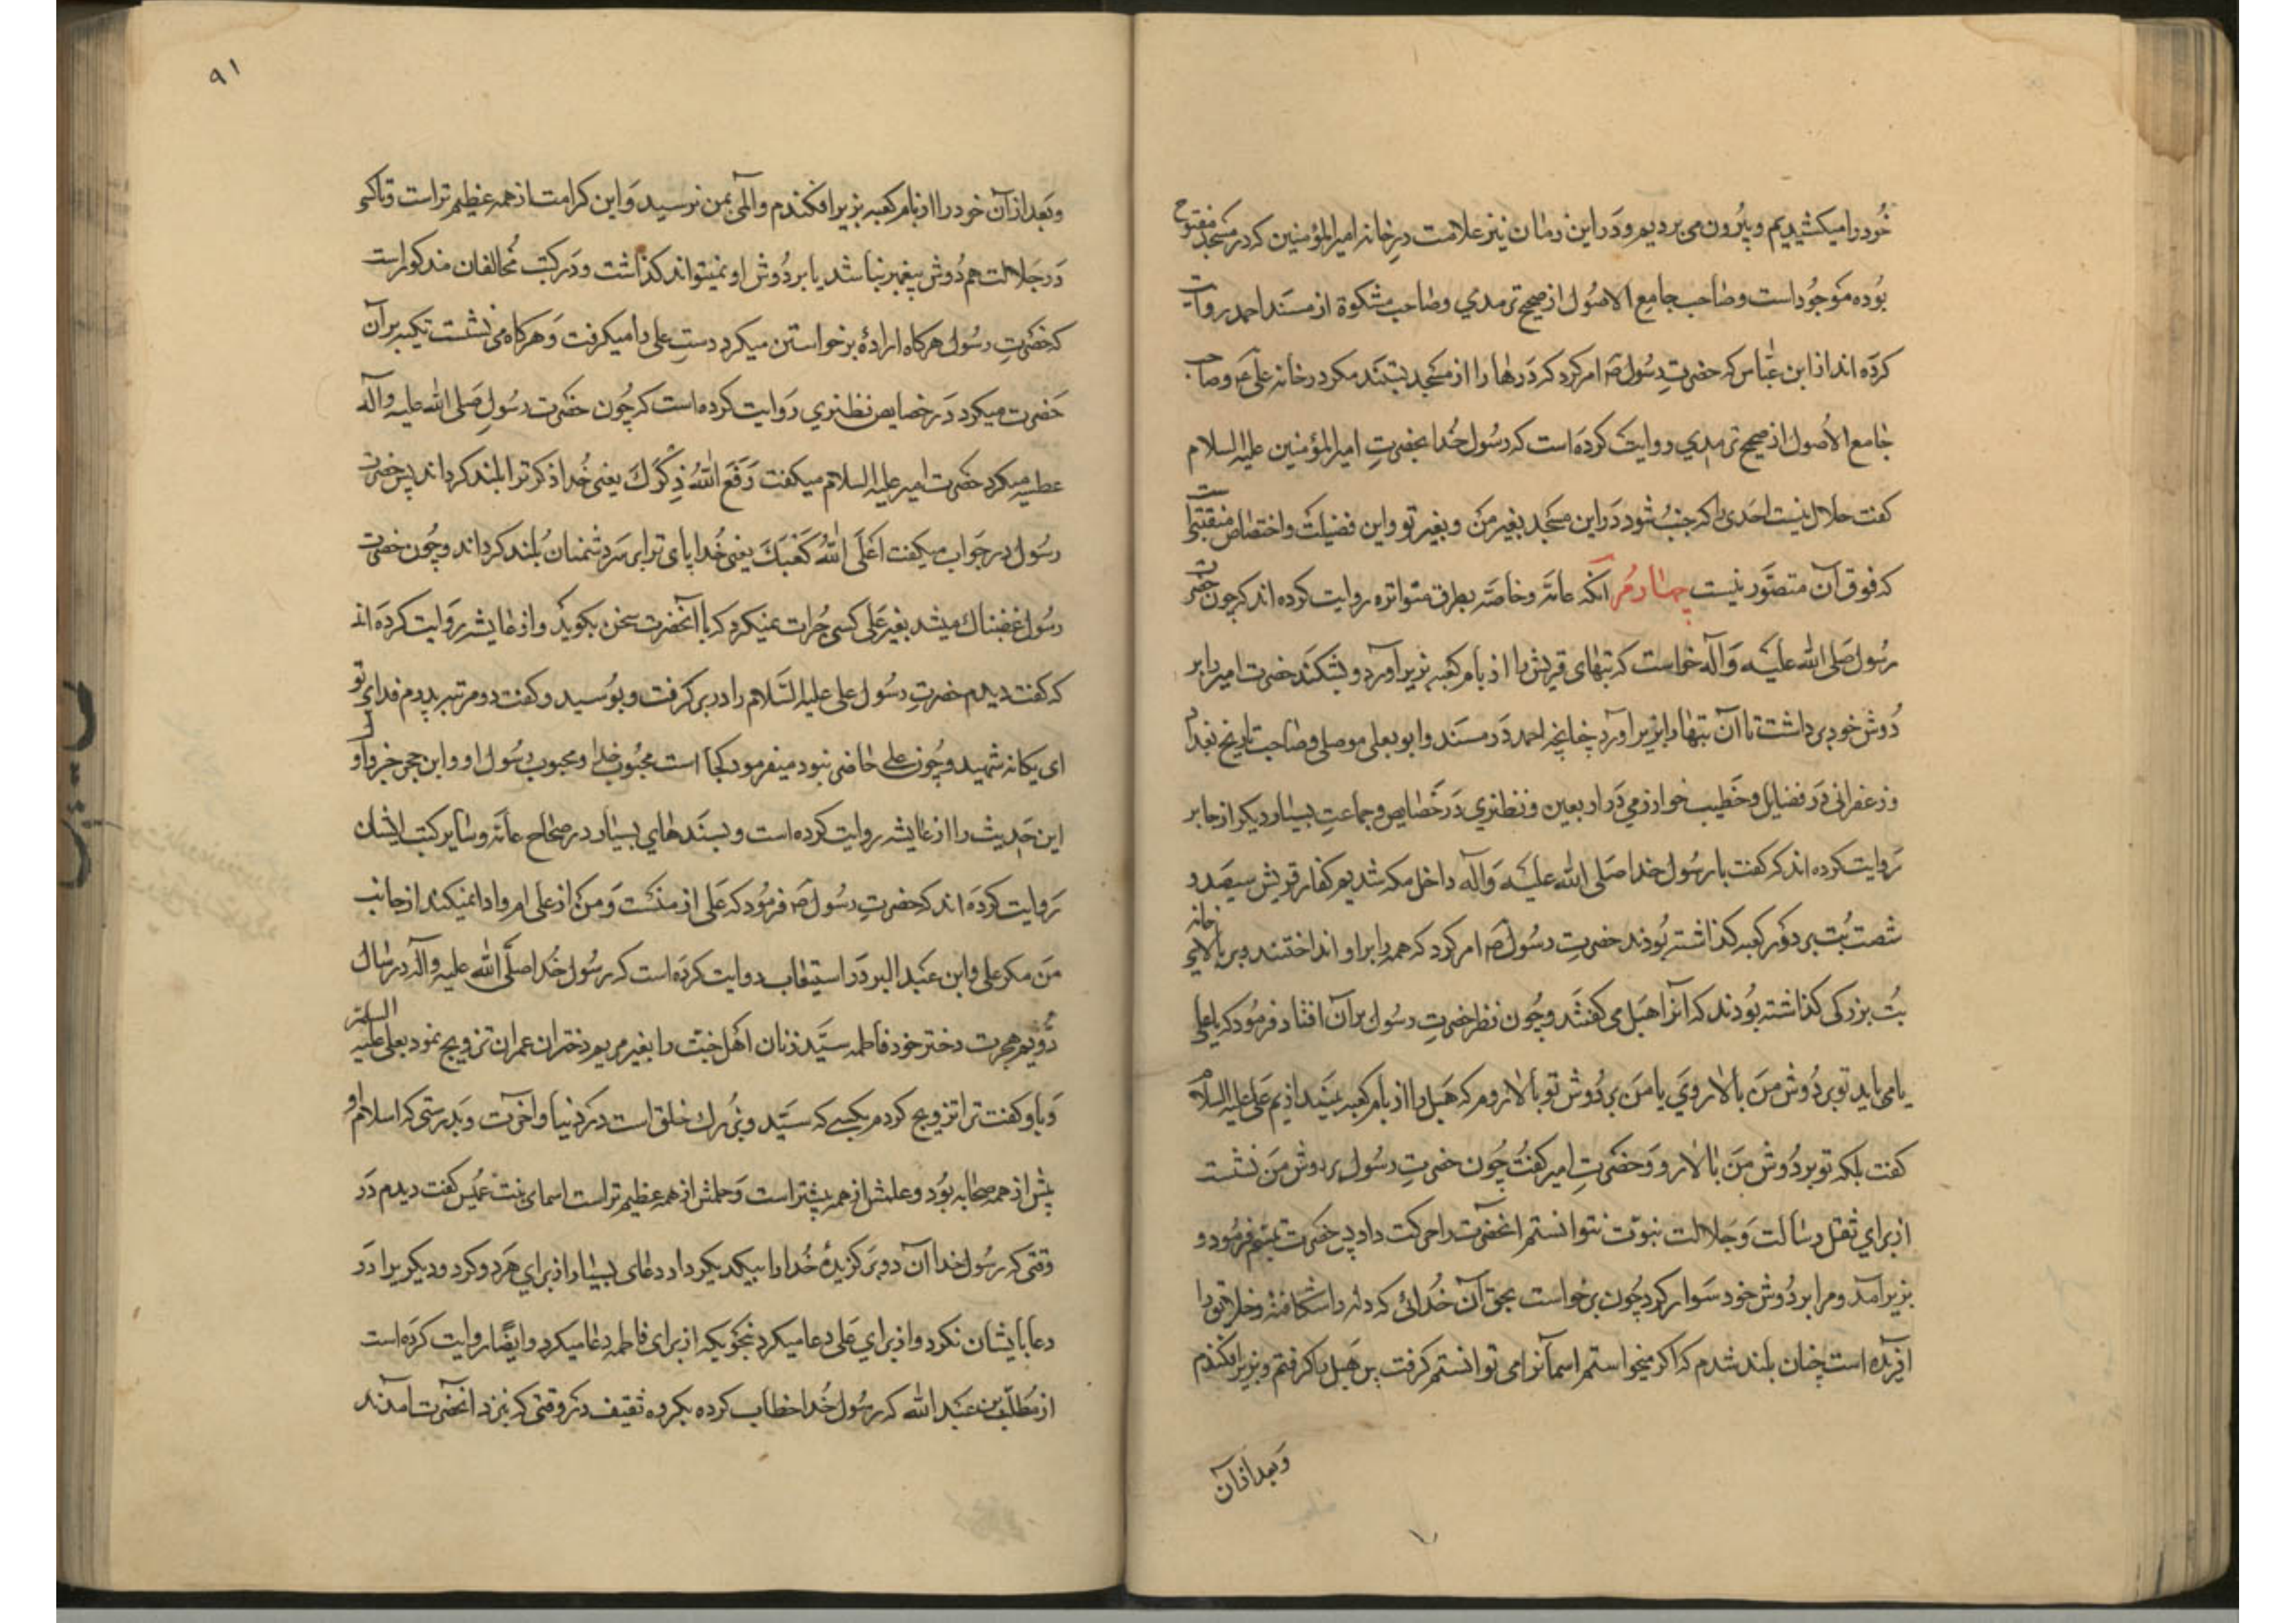 خود را میکشیدیم و بیرون می بردیم و در این زمان نیز علامت در خانه امیرالمؤمنین که در مسجد مفتوح
بوده موجود است و صاحب جامع الاصول از صحیح ترمدي و صاحب مشکوة از مسند احمد روایت
کرده اند از ابن عباس که حضرت رسول ص امر کرد که درها را از مسجد ببندند مگر در خانه علی ع و صاحب
جامع الاصول از صحیح ترمدي روایت کرده است که رسول خدا بحضرت امیرالمؤمنین علیه السلام
کفت حلال نیست احدی را که جنب شود در این مسجد بغیر من و بغیر تو و این فضیلت و اختصاص منقبتیست
که فوق آن متصور نیست چهارم آنکه عامه و خاصه بطرق متواتره روایت کرده اند که چون حضرت
رسول صلی الله علیه و آله خواست که بتهای قریش را از بام کعبه بزیر آورد و بشکند حضرت امیر را بر
دوش خود برداشت تا آن بتها را بزیر آورد چنانچه احمد در مسند و ابو یعلی موصلی و صاحب تاریخ بغداد
و زعفرانی در فضایل و خطیب خوارزمي در اربعین و نطنزي در خصایص و جماعت بسیار دیکر از جابر
روایت کرده اند که کفت با رسول خدا صلی الله علیه و آله داخل مکه شدیم کفار قریش سیصد و
شصت بت بر دور کعبه کذاشته بودند حضرت رسول ص امر کرد که همه را برو انداختند و بر بالای خانه
بت بزرکی کذاشته بودند که آنرا هبل می کفتند و چون نظر حضرت رسول بر آن افتاد فرمود که یا علی
یا می باید تو بر دوش من بالا روی یا من بر دوش تو بالا روم که هبل را از بام کعبه بیندازیم علی علیه السلام
کفت بلکه تو بر دوش من بالا رو و حضرت امیر کفت چون حضرت رسول بر دوش من نشست
از برای ثقل رسالت و جلالت نبوت نتوانستم آنحضرت را حرکت داد پس حضرت تبسم فرمود و
بزیر آمد و مرا بر دوش خود سوار کرد چون برخواست بحق آن خدائی که دانه را شکافته و خلایق را
آفریده است چنان بلند شدم که اکر میخواستم آسمان را می توانستم کرفت پس هبل را کرفتم و بزیر افکندم
و بعد از آن
۹۱
و بعد از آن خود را از بام کعبه بزیر افکندم و المی بمن نرسید و این کرامت از همه عظیم تر است و تا کسی
در جلالت هم دوش پیغمبر نباشد پا بر دوش او نمیتواند کذاشت و در کتب مخالفان مذکور است
که حضرت رسول هر کاه اراده برخواستن میکرد دست علی را میکرفت و هر کاه می نشست تکیه بر آن
حضرت میکرد در خصایص نطنزي روایت کرده است که چون حضرت رسول صلی الله علیه و آله
عطسه میکرد حضرت امیر علیه السلام میکفت رفع الله ذکرک یعنی خدا ذکر ترا بلند کرداند پس حضرت
رسول در جواب میکفت اعلی الله کعبک یعنی خدا پای ترا بر سر دشمنان بلند کرداند و چون حضرت
رسول غضبناک میشد بغیر علی کسی جرات نمیکرد که با آنحضرت سخن بکوید و از عایشه روایت کرده اند
که کفت دیدم حضرت رسول علی علیه السلام را در بر کرفت و بوسید و کفت دو مرتبه پدرم فدای تو باد
ای یکانه شهید و چون علی حاضر نبود میفرمود کجا است محبوب خدا و محبوب رسول او و ابن حجر و او
این حدیث را از عایشه روایت کرده است و بسندهای بسیار در صحاح عامه و سایر کتب ایشان
روایت کرده اند که حضرت رسول ص فرمود که علی از منست و من از علی ام و ادا نمیکند از جانب
من مکر علی و ابن عبد البر در استیعاب روایت کرده است که رسول خدا صلی الله علیه و آله در سال
دویم هجرت دختر خود فاطمه سیده زنان اهل جنت را بغیر مریم دختر عمران تزویج نمود بعلی علیه السلام
و باو کفت ترا تزویج کردم بکسی که سید و بزرک خلق است در دنیا و آخرت و بدرستی که اسلام او
پیش از همه صحابه بود و علمش از همه بیشتر است و حلمش از همه عظیم تر است اسمای بنت عمیس کفت دیدم در
وقتی که رسول خدا آن دو برکزیده خدا را بیکدیکر داد دعای بسیار از برای هر دو کرد و دیکری را در
دعا با ایشان نکرد و از برای علی دعا میکرد بنحویکه از برای فاطمه دعا میکرد و ایضا روایت کرده است
از مطلب بن عبد الله که رسول خدا خطاب کرده بکروه ثقیف در وقتی که بنزد آنحضرت آمدند